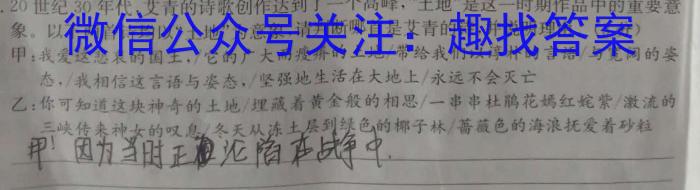 20世纪30年代,艾青的诗歌创作达到了一个高峰,"土地"是这一时期作品中的重要意
象。以
微信公众号关注:趣找答案
甲:我爱这悲哀的国土,它的广大而瘦瘠的土地/带给我们
态,/我相信这言语与姿态,/坚强地生活在大地上/永远不会灭亡
乙:你可知道这块神奇的土地/埋藏着黄金般的相思/一串串杜鹃花嫣红姹紫/激流的
三峡传来神女的叹息/冬天从冻土层到绿色的椰子林/蔷薇色的海浪抚爱着砂粒
甲!因为当时正 沦陷在战争中.